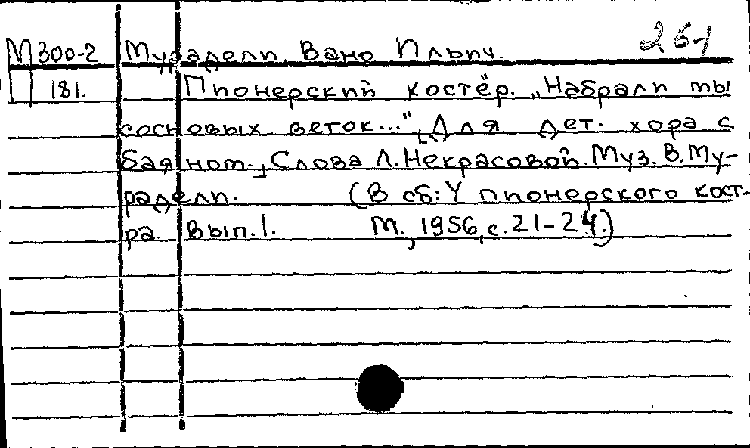 26-1
М300-2 Мурадели, Вано Ильич.
181. Пионерский костёр. „Набрали мы
сосновых веток..." [Для дет. хора с
баяном.] Слова Л.Некрасовой. Муз. В.Му-
радели. (В сб: У пионерского кост-
ра. Вып.1. М., 1956, с.21-24.)